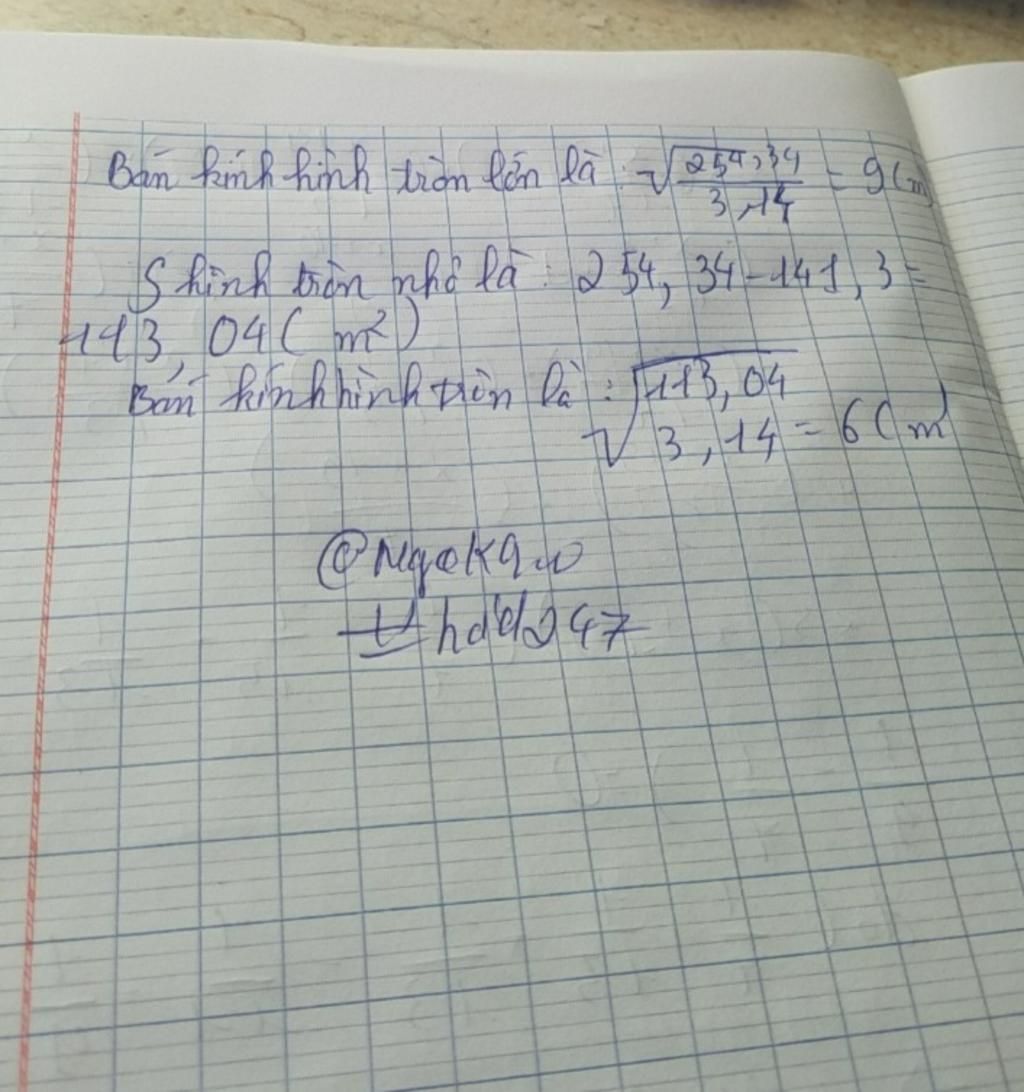 Bán kính hình tròn lớn là: √254,34/3,14 = 9(m)
S hình tròn nhỏ là: 254,34-141,3=
113,04(m²)
Bán kính hình tròn là: √113,04/3,14=6(m